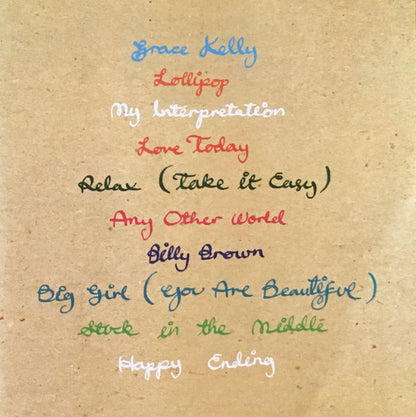 Grace Kelly
Lollipop
My Interpretation
Love Today
Relax (Take it Easy)
Any Other World
Billy Brown
Big Girl (You Are Beautiful)
Stuck in the Middle
Happy Ending